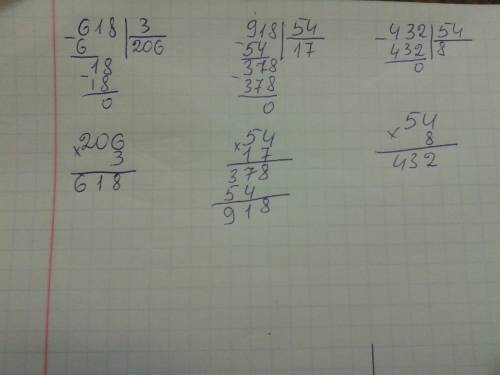 -618 | 3
6 | 206
18
-18
0
×206
3
618
918 | 54
-54 | 17
378
-378
0
×54
17
378
54
918
-432 | 54
432 | 8
0
×54
8
432